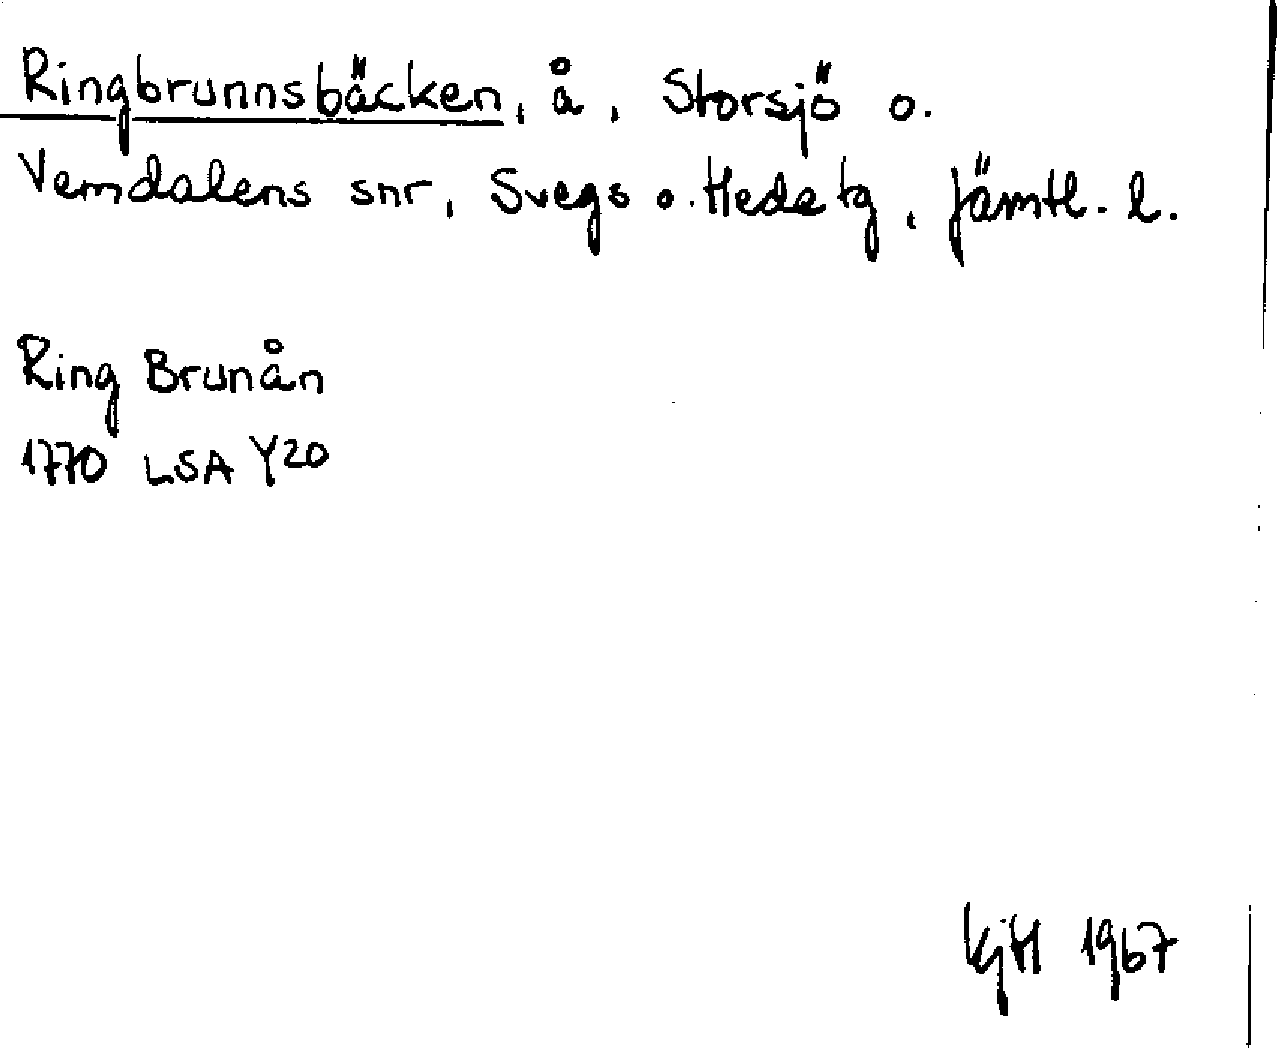 Ringbrunnsbäcken, å, Storsjö o.
Vemdalens snr, Svegs o. Hede tg, Jämtl. l.
Ring Brunån
1770 LSA Y20
KjH 1967